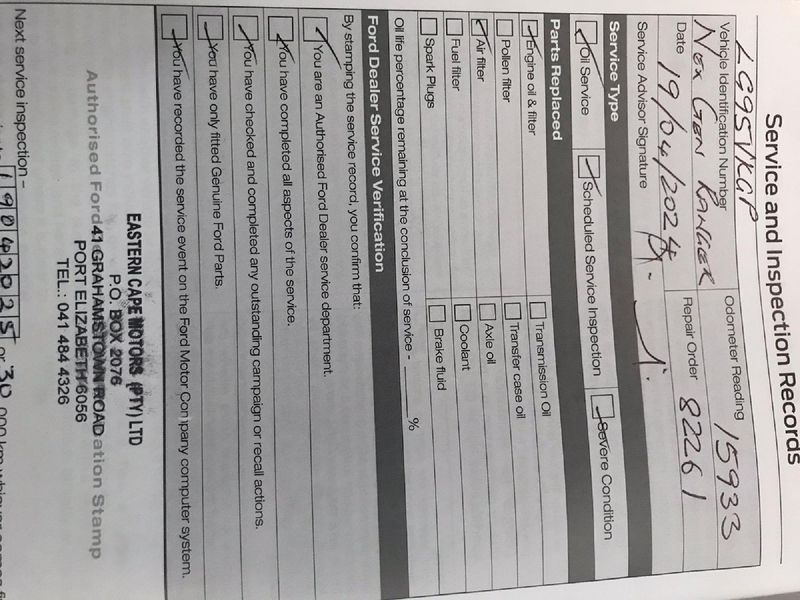 Service and Inspection Records
LG95VKGP
Vehicle Identification Number
Odometer Reading
15933
Nex Gen Ranger
Date
19/04/2024
Repair Order
82261
Service Advisor Signature
Service Type
Oil Service
Scheduled Service Inspection
Severe Condition
Parts Replaced
Engine oil & filter
Transmission Oil
Pollen filter
Transfer case oil
Air filter
Axle oil
Fuel filter
Coolant
Spark Plugs
Brake fluid
Oil life percentage remaining at the conclusion of service - %
Ford Dealer Service Verification
By stamping the service record, you confirm that:
You are an Authorised Ford Dealer service department.
You have completed all aspects of the service.
You have checked and completed any outstanding campaign or recall actions.
You have only fitted Genuine Ford Parts.
You have recorded the service event on the Ford Motor Company computer system.
EASTERN CAPE MOTORS (PTY) LTD
P.O. BOX 2076
Authorised Ford
41 GRAHAMSTOWN ROAD
Stamp
PORT ELIZABETH 6056
TEL.: 041 484 4326
Next service inspection –
19042025 or 30 000 km